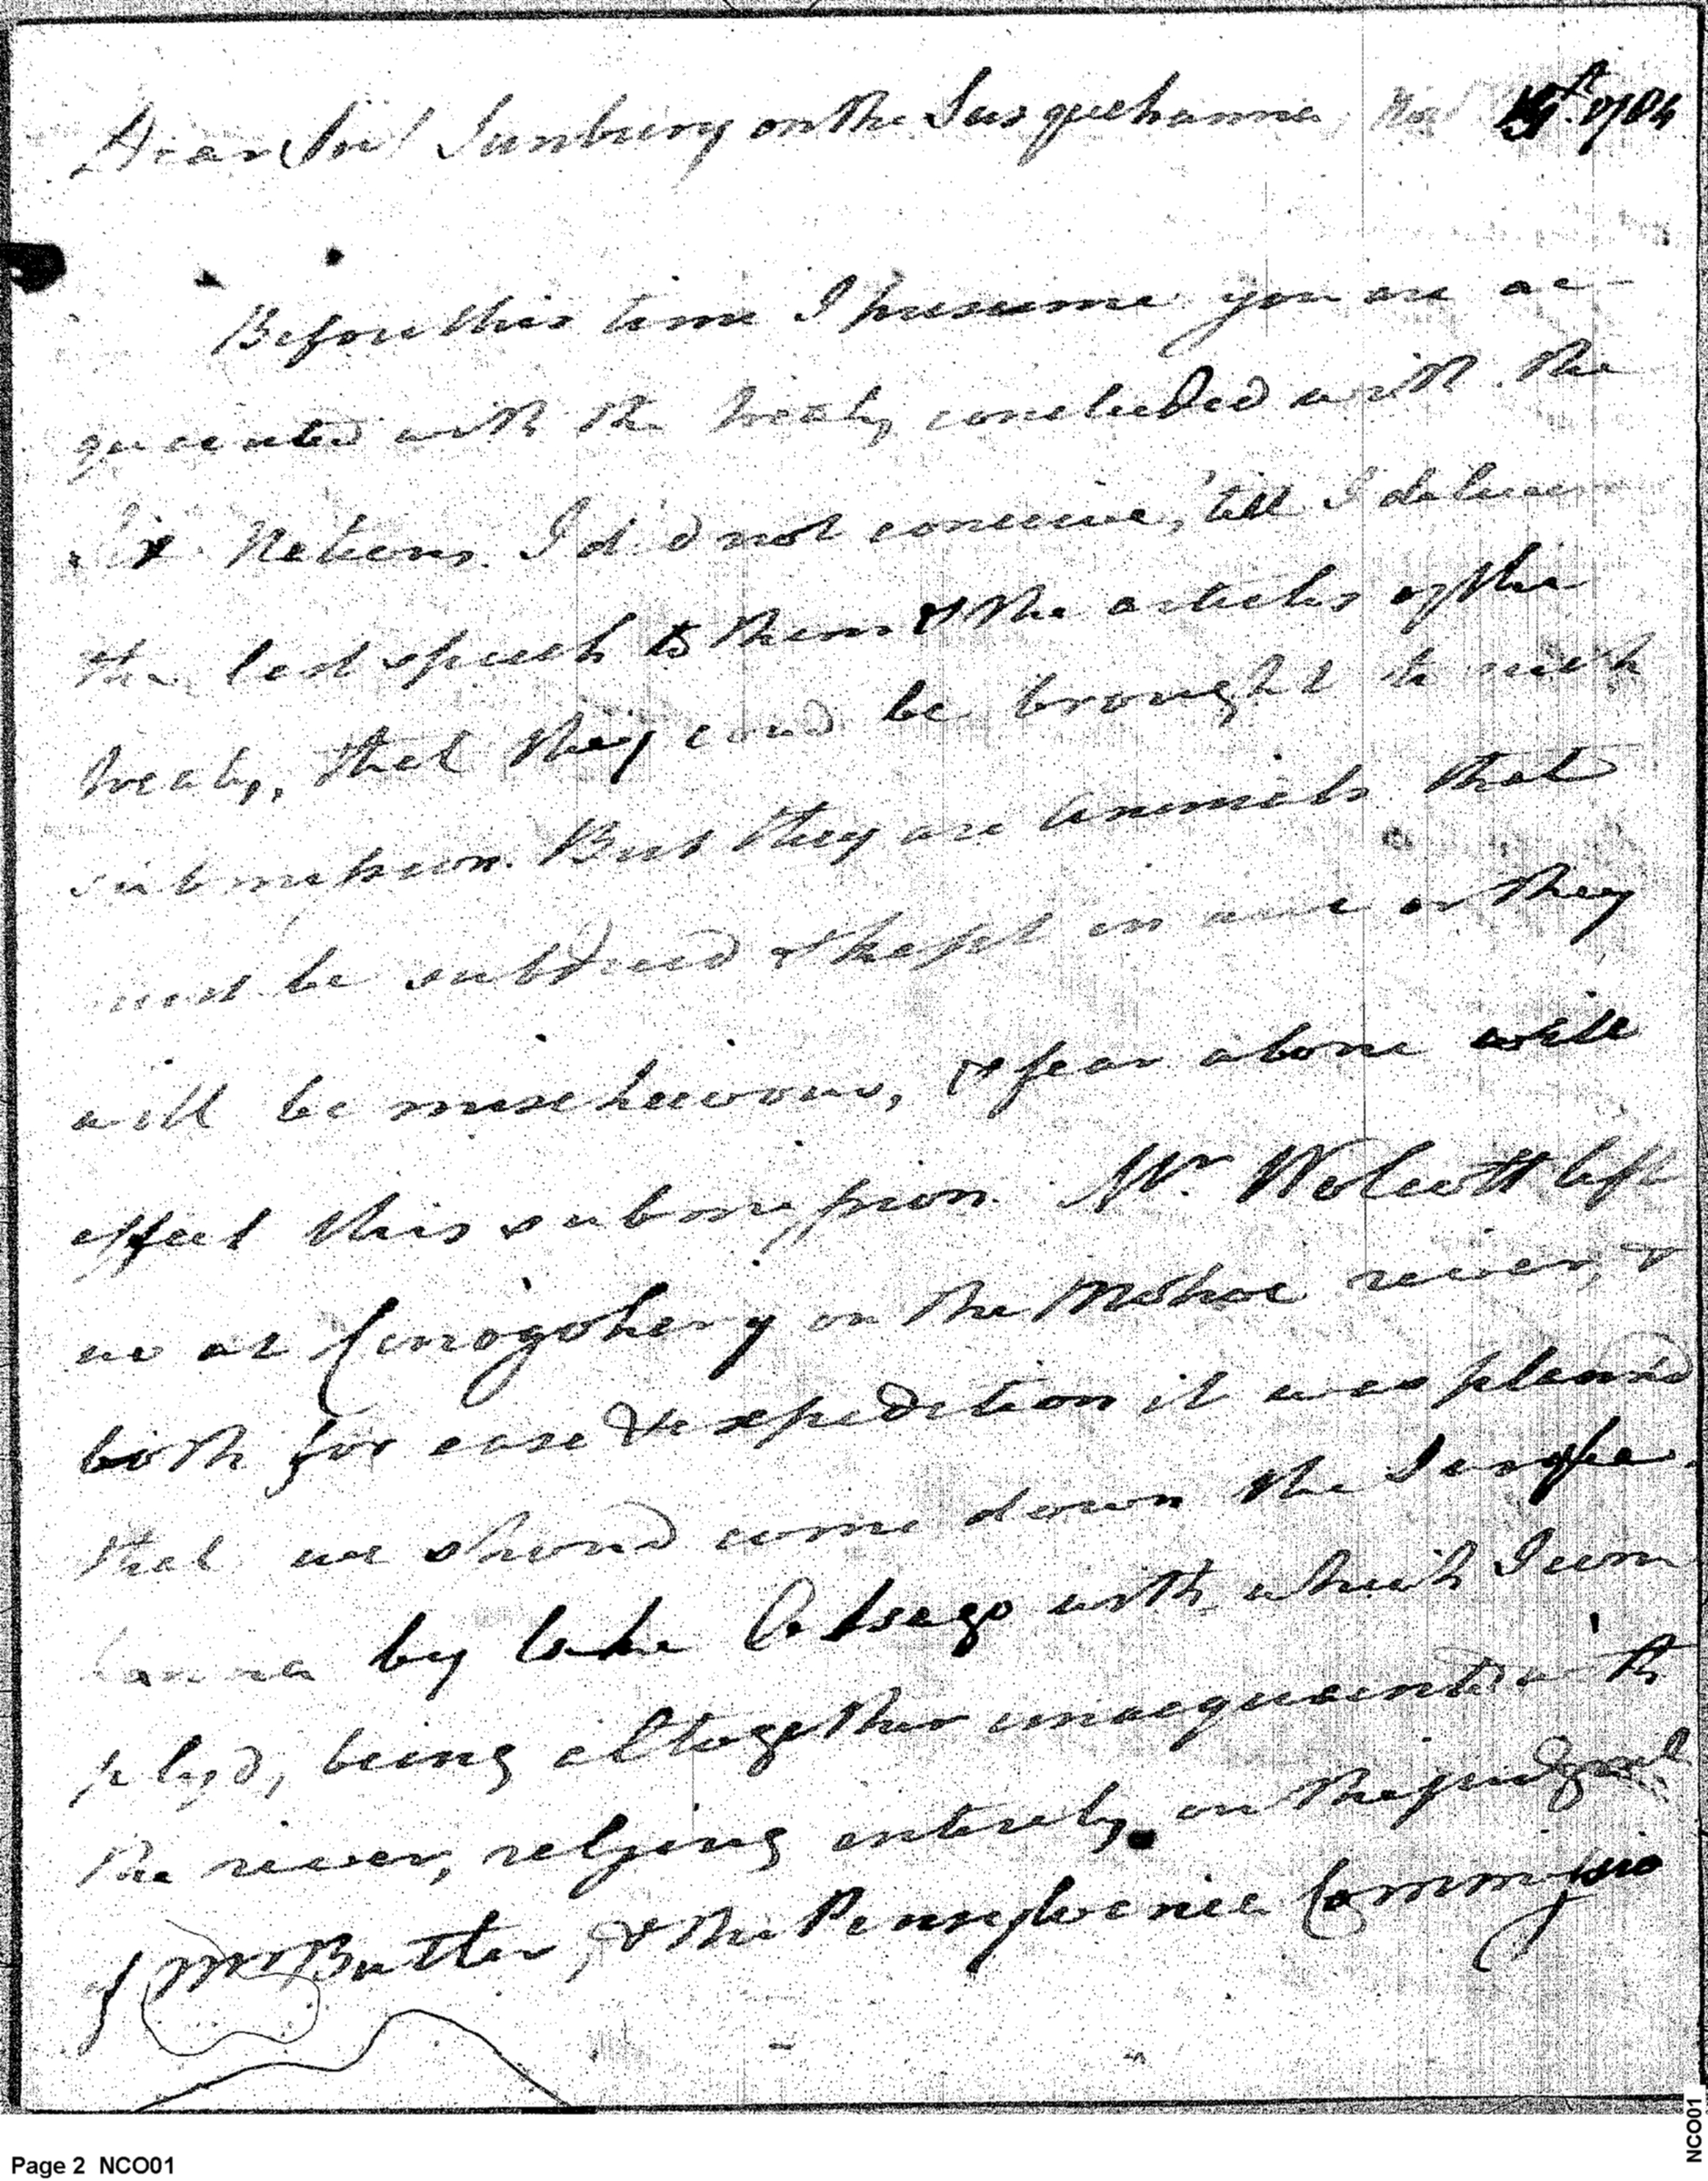 Dear Sir/ Sunbury on the Susquehanna, Nov 19th. 1784
Before this time I presume you are ac-
quainted with the treaty concluded with the
Six Nations. I did not conceive, 'till I deliver
the last speech to them & the articles of the
treaty, that they coud be brought to such
submission. But they are animals that
must be subdued & kept in awe or they
will be mischievous, & fear alone will
effect this submission. Mr. Wolcott left
us at Conogohery on the Mohoc river, &
both for ease & expedition it was plannd
that we shoud come down the Susque-
hanna by lake Otsego with which I com
plyd, being altogether unacquainted with
the river, relying entirely on the judgmt
of Mr Butler, & the Pensylvania Commissio
Page 2 NCO01
NCO01